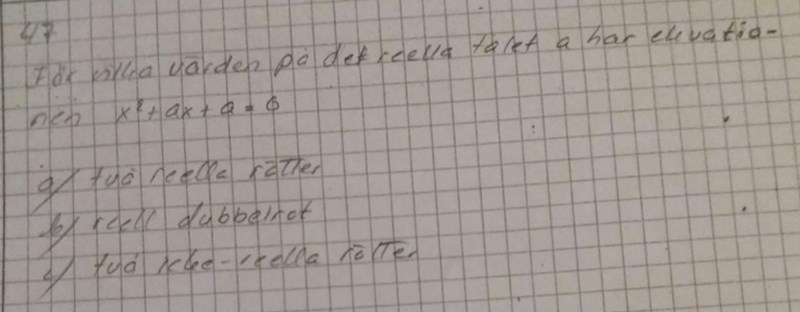 47
För vilka värden på det reella talet a har ekvatio-
nen x²+ax+a=0
a) två reella rötter
b) reell dubbelrot
c) två icke-reella rötter